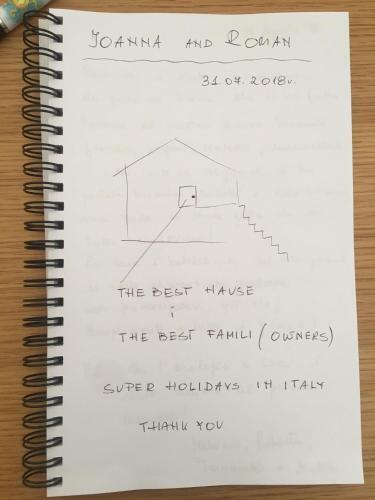 JOANNA AND ROMAN
31.07.2018r.
THE BEST HAUSE
i
THE BEST FAMILI (OWNERS)
SUPER HOLIDAYS IN ITALY
THANK YOU